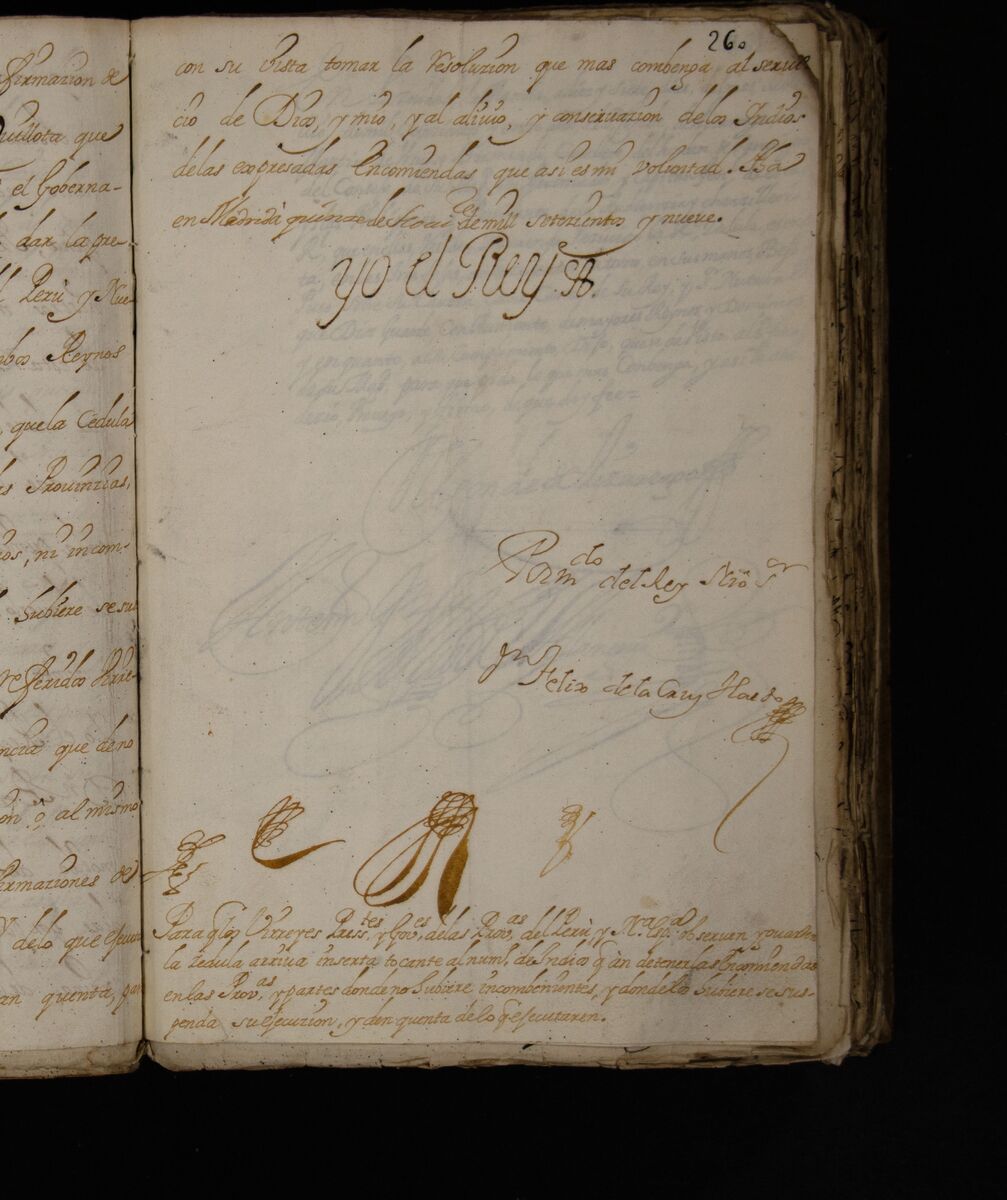 firmazion de
Quillota que
el Goberna-
dar la pre
l Perù y Nue
mbos Reynos
, que la Cedula
as Prouinzias,
, ni incom-
Subiere se su
referidos Virre-
ncia que de no
on ò, al mismo
firmaziones de
Y de lo que efecu
an quenta, par
26.
con su Vista tomar la Resoluzion que mas combenga al serui
cio de Dios, y mio, y al aliuio, y conseruazion de los Indios
de las expresadas Encomiendas que asi es mi Voluntad. fha
en Madrid à quinze de de mill setezientos y nueve.
yo el Rey
Por mdo del Rey Nrõ Sr
Felix de la Cruz Haedo
Para q los Virreyes Presstes y Govres de las Provas del Perù y Na Espa obserben y guarden
la zedula arriva inserta tocante al numo de Indios q an de tener las Encomiendas
en las Provas y partes donde no Hubiere incombenientes, y donde los hubiere se sus-
penda su ejecuzion, y den quenta de lo q ejecutaren.